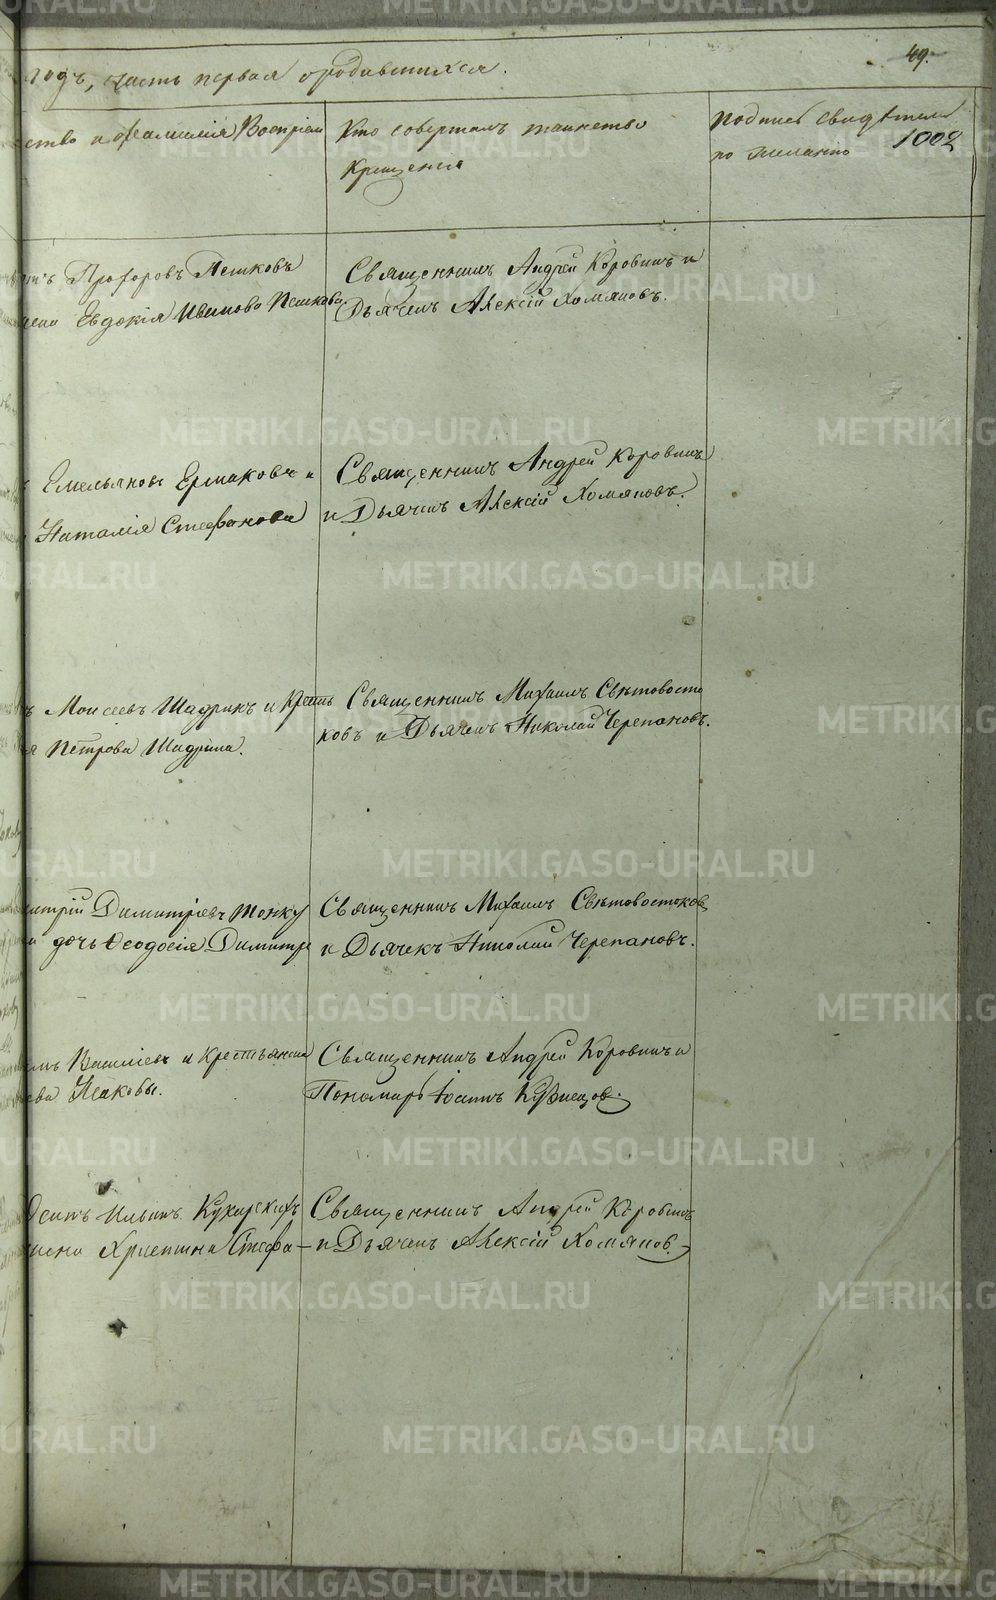 49.
годъ, часть первая о родившихся.
ство и фамилія Воспріем
Кто совершалъ таинство
Крещенія
Подпись свидѣтелей
по желанію
1002
Прохоровъ Пешковъ
Евдокія Иванова Пешкова.
Священникъ Андрей Коровинъ и
Дьячекъ Алексій Хомяковъ.
Емельяновъ Ермаковъ и
Наталія Стефанова
Священникъ Андрей Коровинъ
и Дьячекъ Алексій Хомяковъ.
Моисеевъ Шадринъ и Крестьъ
Петрова Шадрина.
Священникъ Михаилъ Свѣтовосто
ковъ и Дьячекъ Николай Черепановъ.
митрій Димитріевъ Тонку
дочь Ѳеодосія Димитре
Священникъ Михаилъ Свѣтовостоков
и Дьячек Николай Черепановъ.
Василіевъ и Крестьянка
ева Исаковы.
Священникъ Андрей Коровинъ и
Пономарь Іоаннъ Кузнецов.
Осипъ Ильинъ Кухарскихъ
Христина Стефа-
Священникъ Андрей Коровинъ
и Дьячекъ Алексій Хомяков.
METRIKI.GASO-URAL.RU